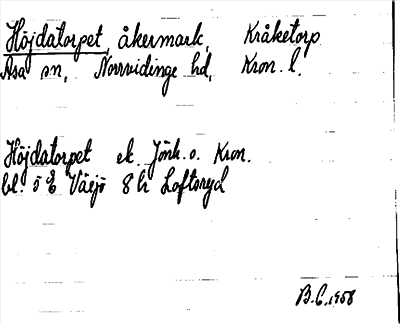 Höjdatorpet, åkermark, Kråketorp
Asa sn, Norrvidinge hd, Kron. l.
Höjdatorpet ek. Jönk. o. Kron.
bl. 5 E Växjö 8 h Loftsryd
B.C. 1958